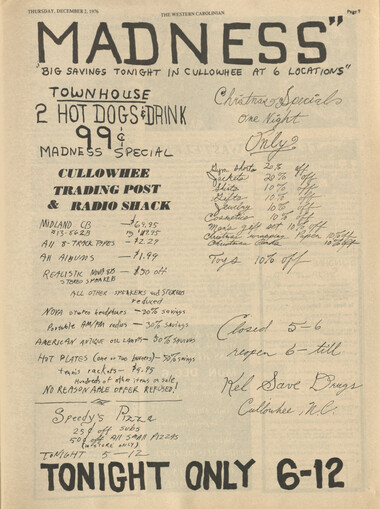 THURSDAY, DECEMBER 2, 1976
THE WESTERN CAROLINIAN
Page 9
MADNESS"
"BIG SAVINGS TONIGHT IN CULLOWHEE AT 6 LOCATIONS"
TOWNHOUSE
2 HOT DOGS & DRINK
99¢
MADNESS SPECIAL
CULLOWHEE
TRADING POST
& RADIO SHACK
MIDLAND CB
#13-862B
—$69.95
All 8-TRACK TAPES —$2.29
All Albums —$1.99
REALISTIC NOVA 8B —$30 off
STEREO SPEAKERS
ALL OTHER SPEAKERS and STEREOS
reduced
NOVA stereo headphones — 20% savings
Portable AM/FM radios — 30% savings
AMERICAN ANTIQUE OIL LAMPS — 30% SAVINGS
HOT PLATES (one or two burners) — 30% savings
tennis rackets — $4.95
Hundreds of other items on sale,
NO REASONABLE OFFER REFUSED!
Speedy's Pizza
25¢ off subs
50¢ off All Small PIZZAS
TONIGHT 5—12
Christmas Specials
One Night
Only
Gym Shorts 20% off
Jackets 20% off
Shirts 10% off
Gifts 10% off
Jewelry 10% off
Cosmetics 10% off
Men's gift set 10% off
Christmas wrapping Paper 10% off
Christmas Cards 10% off
Toys 10% off
Closed 5-6
reopen 6-till
Kel Save Drugs
Cullowhee, N.C.
TONIGHT ONLY 6-12